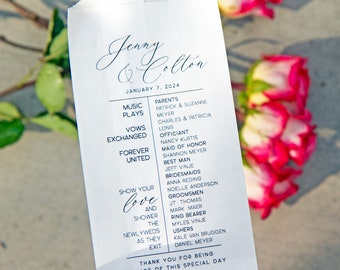 Jenny
& Colton
JANUARY 7, 2024
MUSIC
PLAYS
VOWS
EXCHANGED
FOREVER
UNITED
SHOW YOUR
love
AND
SHOWER
THE
NEWLYWEDS
AS THEY
EXIT
PARENTS
PATRICK & SUZANNE
MEYER
CHARLES & PATRICIA
LONG
OFFICIANT
NANCY KURTIS
MAID OF HONOR
SHANNON MEYER
BEST MAN
JEFF VINJE
BRIDESMAIDS
ANNA REDING
NOELLE ANDERSON
GROOMSMEN
JT THOMAS
MARK MAER
RING BEARER
MYLES VINJE
USHERS
KALE VAN BRUGGEN
DANIEL MEYER
THANK YOU FOR BEING
OF THIS SPECIAL DAY